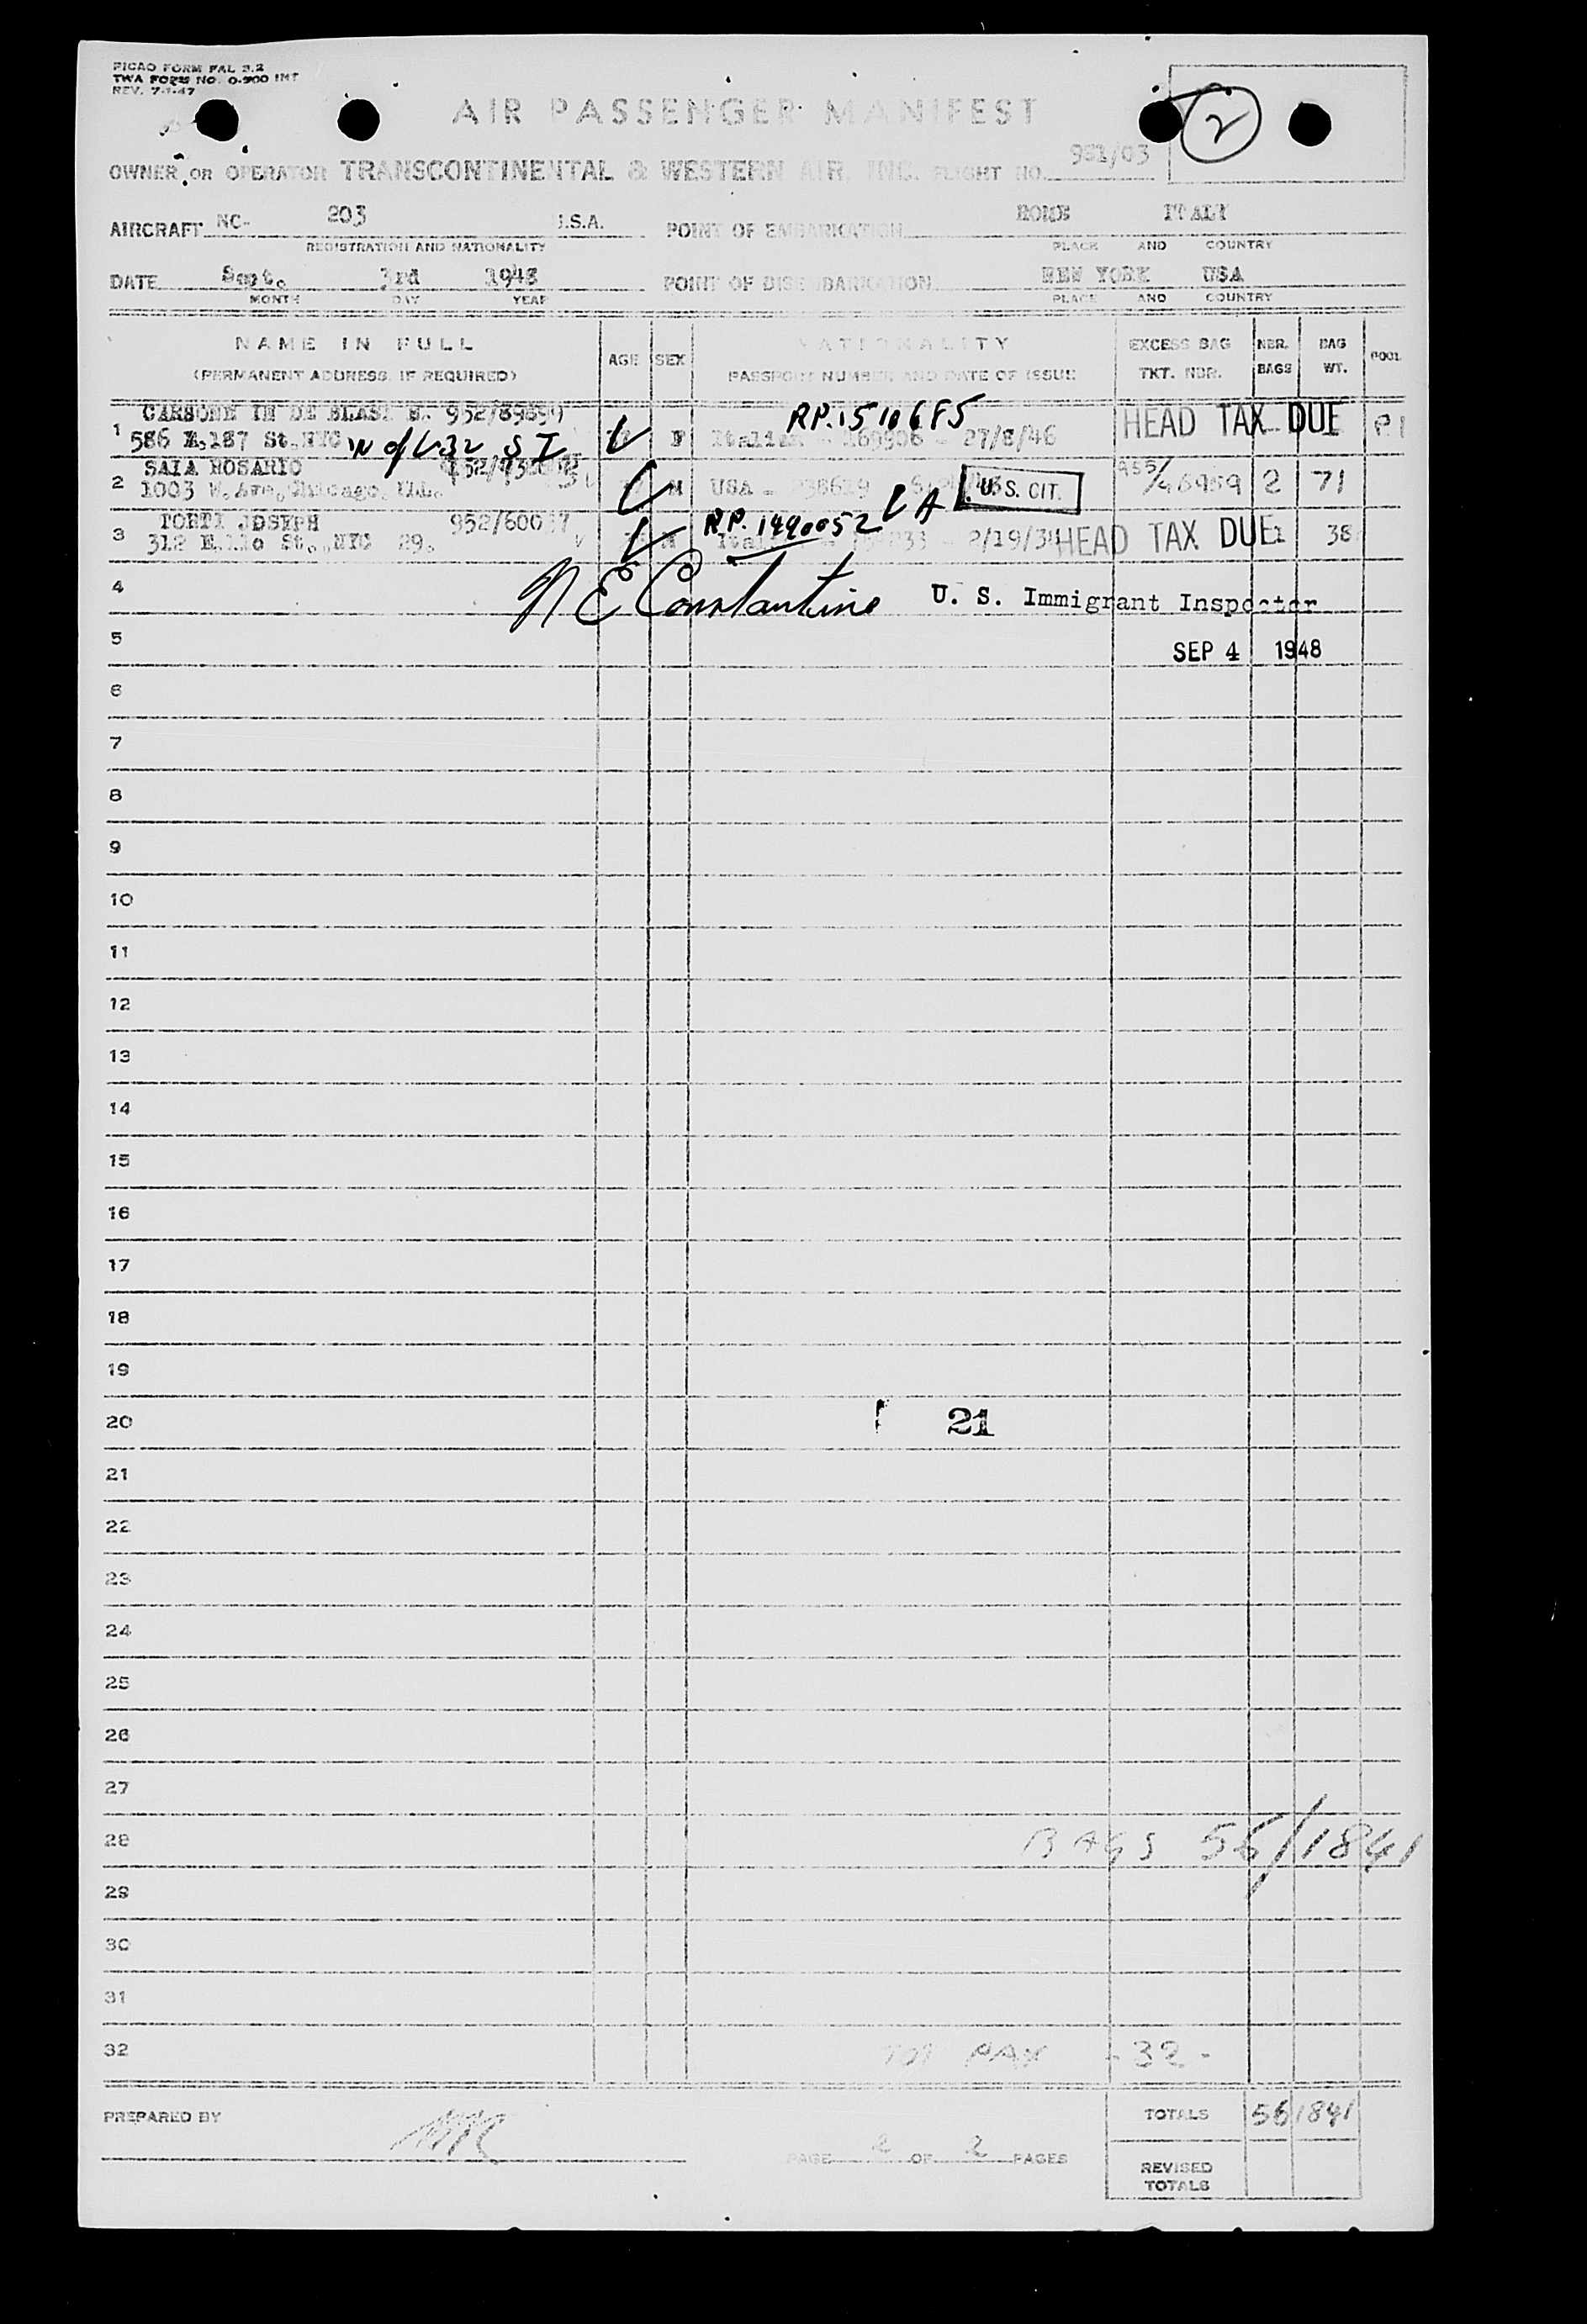 PICAO FORM FAL 2.2
TWA FORM NO. O-900 INT
REV. 7-1-47
AIR PASSENGER MANIFEST
2
OWNER OR OPERATOR TRANSCONTINENTAL & WESTERN AIR, INC. FLIGHT NO. 951/03
AIRCRAFT NC- 203 U.S.A. POINT OF EMBARKATION ROME ITALY
REGISTRATION AND NATIONALITY PLACE AND COUNTRY
DATE Sept. 3rd 1948 POINT OF DISEMBARKATION NEW YORK USA
MONTH DAY YEAR PLACE AND COUNTRY
NAME IN FULL AGE SEX NATIONALITY EXCESS BAG NBR. BAG POOL
(PERMANENT ADDRESS, IF REQUIRED) PASSPORT NUMBER AND DATE OF ISSUE TKT. NBR. BAGS WT.
CARBONE IN DE BLASI R.P. HEAD TAX DUE
1 586 E.187 St.NYC F Italian 27/8/46
SAIA ROSARIO
2 1003 W. Ave, Chicago, Ill. M USA - U.S. CIT. 2 71
JOSEPH R.P. 1490052
3 312 E.110 St., NYC 29. M 2/19/34 HEAD TAX DUE 1 38
4 N E Constantine U. S. Immigrant Inspector
5 SEP 4 1948
6
7
8
9
10
11
12
13
14
15
16
17
18
19
20 21
21
22
23
24
25
26
27
28 BAGS 56/1841
29
30
31
32 TOT PAX -32-
PREPARED BY TOTALS 56 1841
PAGE 2 OF 2 PAGES
REVISED
TOTALS